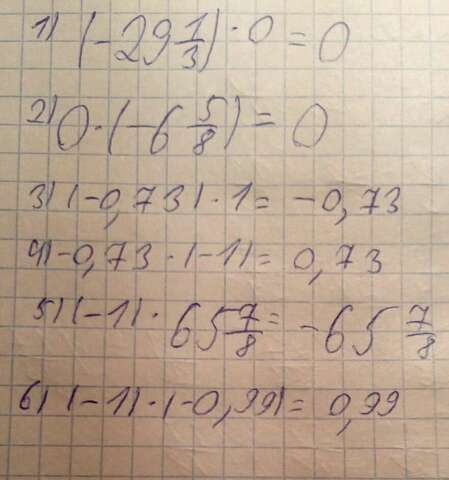 1) (-29 1/3) · 0 = 0
2) 0 · (-6 5/8) = 0
3) (-0,73) · 1 = -0,73
4) -0,73 · (-1) = 0,73
5) (-1) · 65 7/8 = -65 7/8
6) (-1) · (-0,99) = 0,99